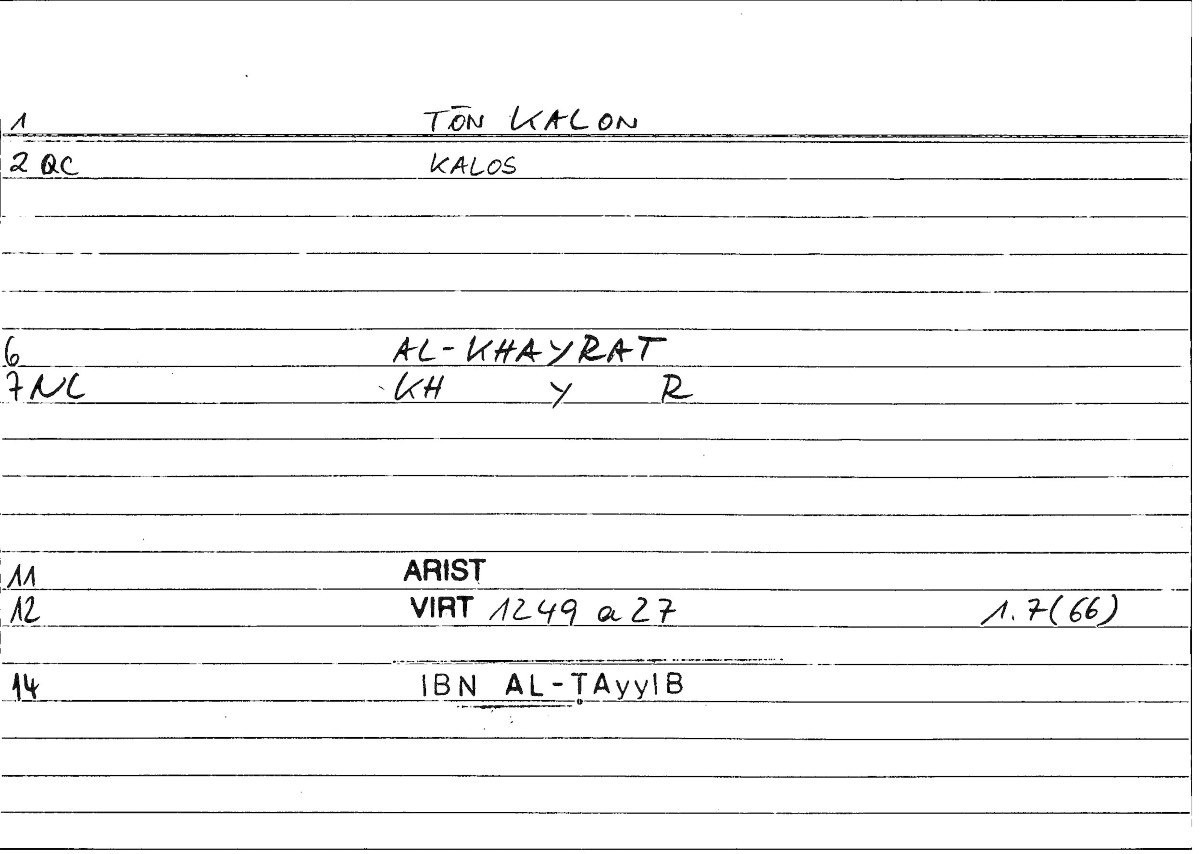 1 TŌN KALON
2 QC KALOS
6 AL-KHAYRAT
7 NC KH Y R
11 ARIST
12 VIRT 1249 a 27 1.7(66)
14 IBN AL-ṬAyyIB